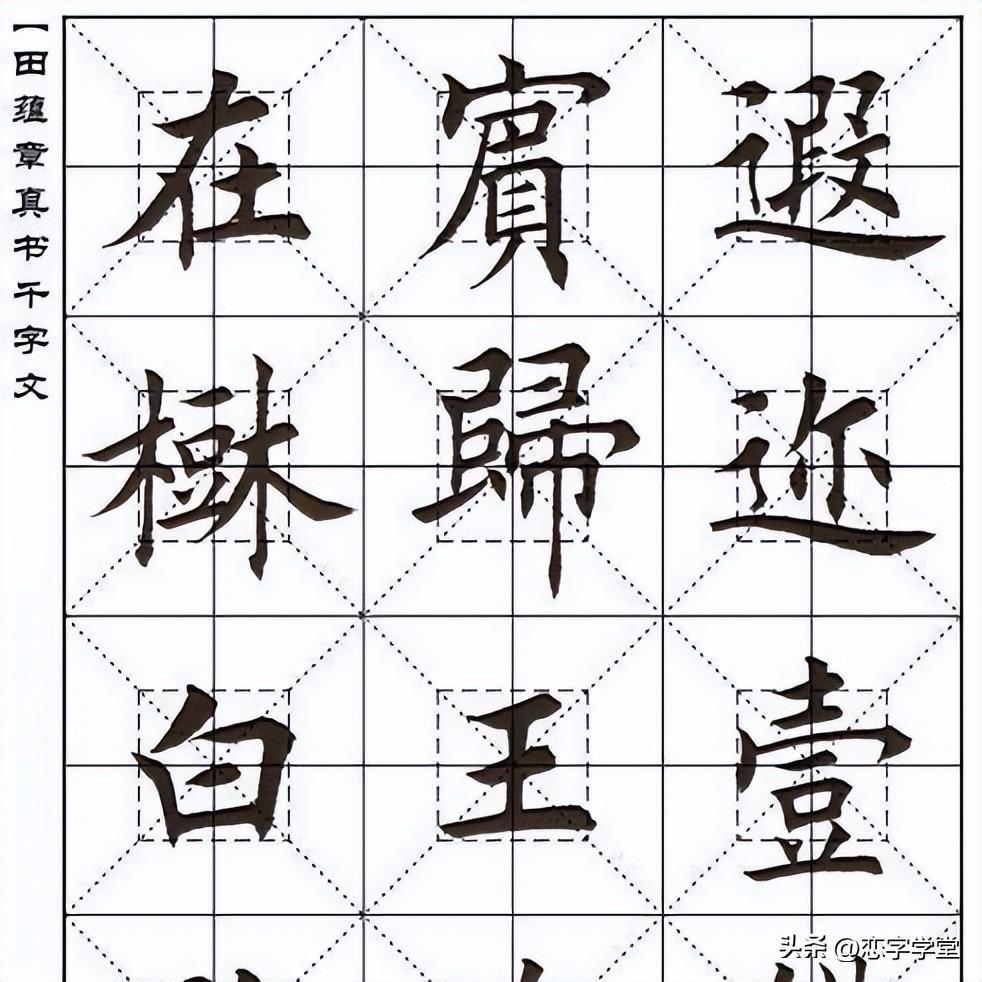 遐迩壹
賓歸王
在樹白
田蕴章真书千字文
头条 @恋字学堂